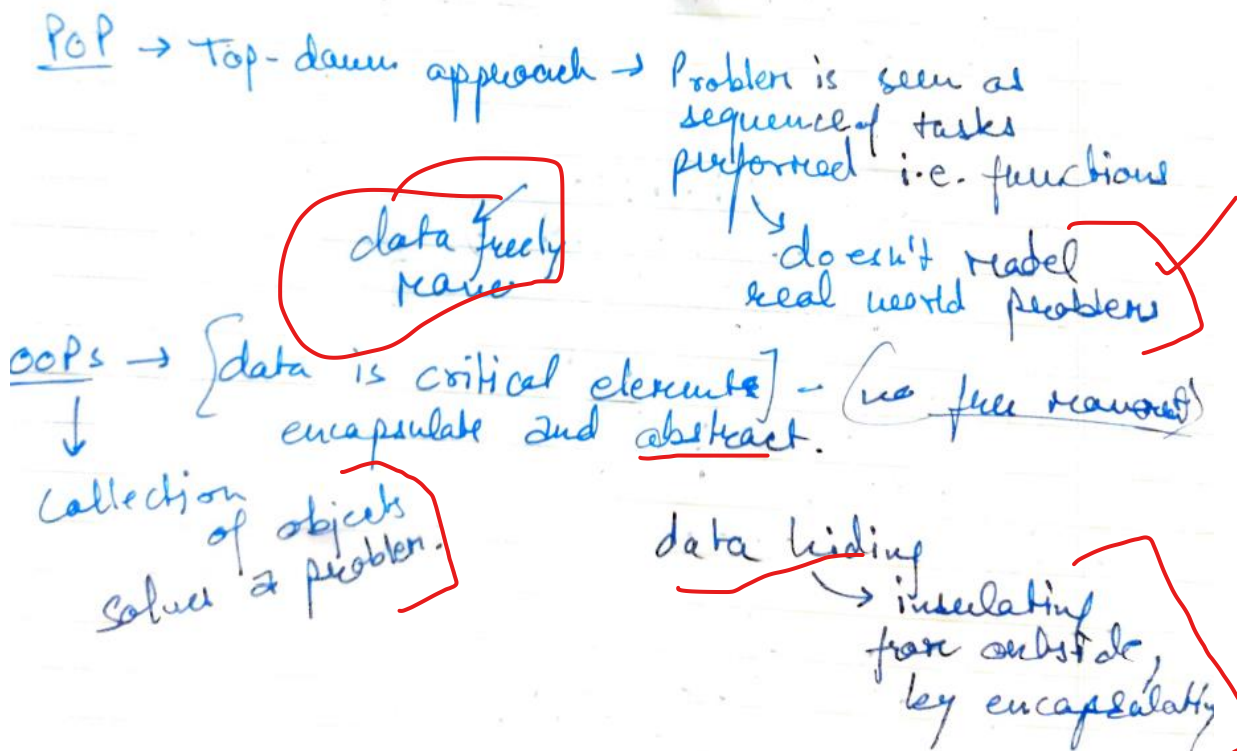 POP → Top-down approach → Problem is seen as
sequence of tasks
performed i.e. functions
data freely
move
doesn't model
real world problems
OOPs → [data is critical elements] - (no free movement)
encapsulate and abstract.
Collection
of objects
solves a problem.
data hiding
→ insulating
from outside,
by encapsulating